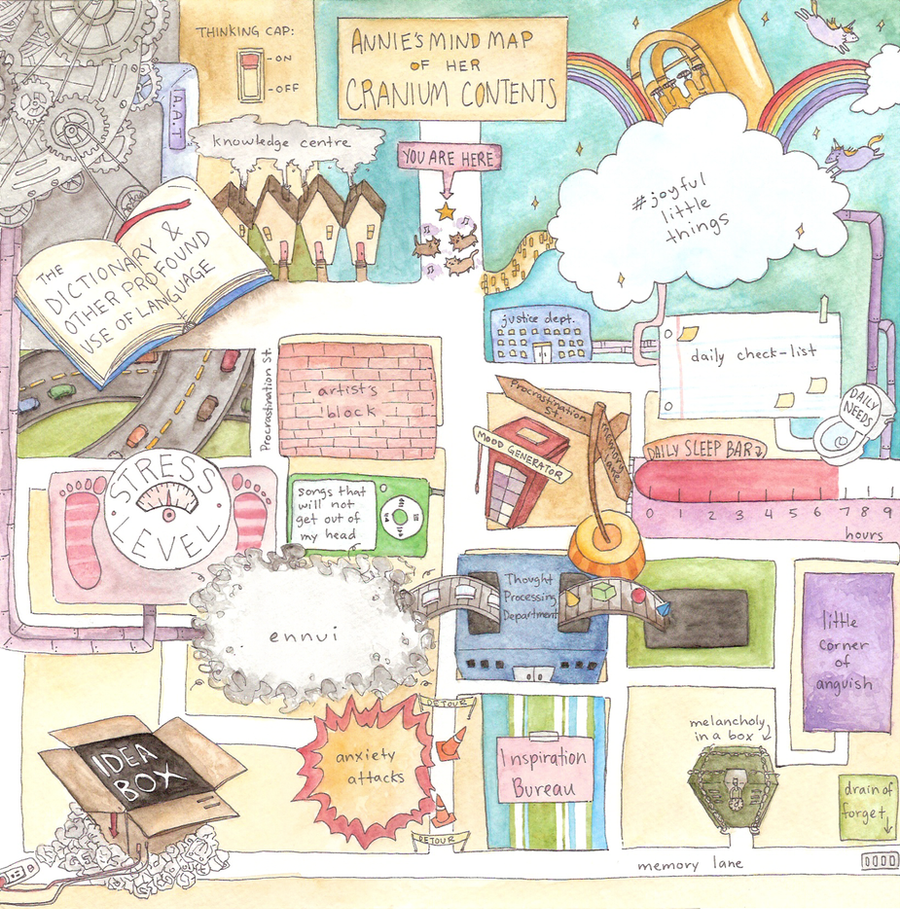 THINKING CAP:
ON
OFF
ANNIE'S MIND MAP
OF HER
CRANIUM CONTENTS
knowledge centre
YOU ARE HERE
#joyful
little
things
THE
DICTIONARY &
OTHER PROFOUND
USE OF LANGUAGE
justice dept.
daily check-list
DAILY
NEEDS
Procrastination St.
artist's
block
Procrastination
St.
memory
lane
MOOD GENERATOR
DAILY SLEEP BAR
0 1 2 3 4 5 6 7 8 9
hours
STRESS
LEVEL
songs that
will not
get out of
my head
ennui
Thought
Processing
Department
little
corner
of
anguish
IDEA
BOX
anxiety
attacks
DETOUR
DETOUR
Inspiration
Bureau
melancholy
in a box
drain of
forget
memory lane